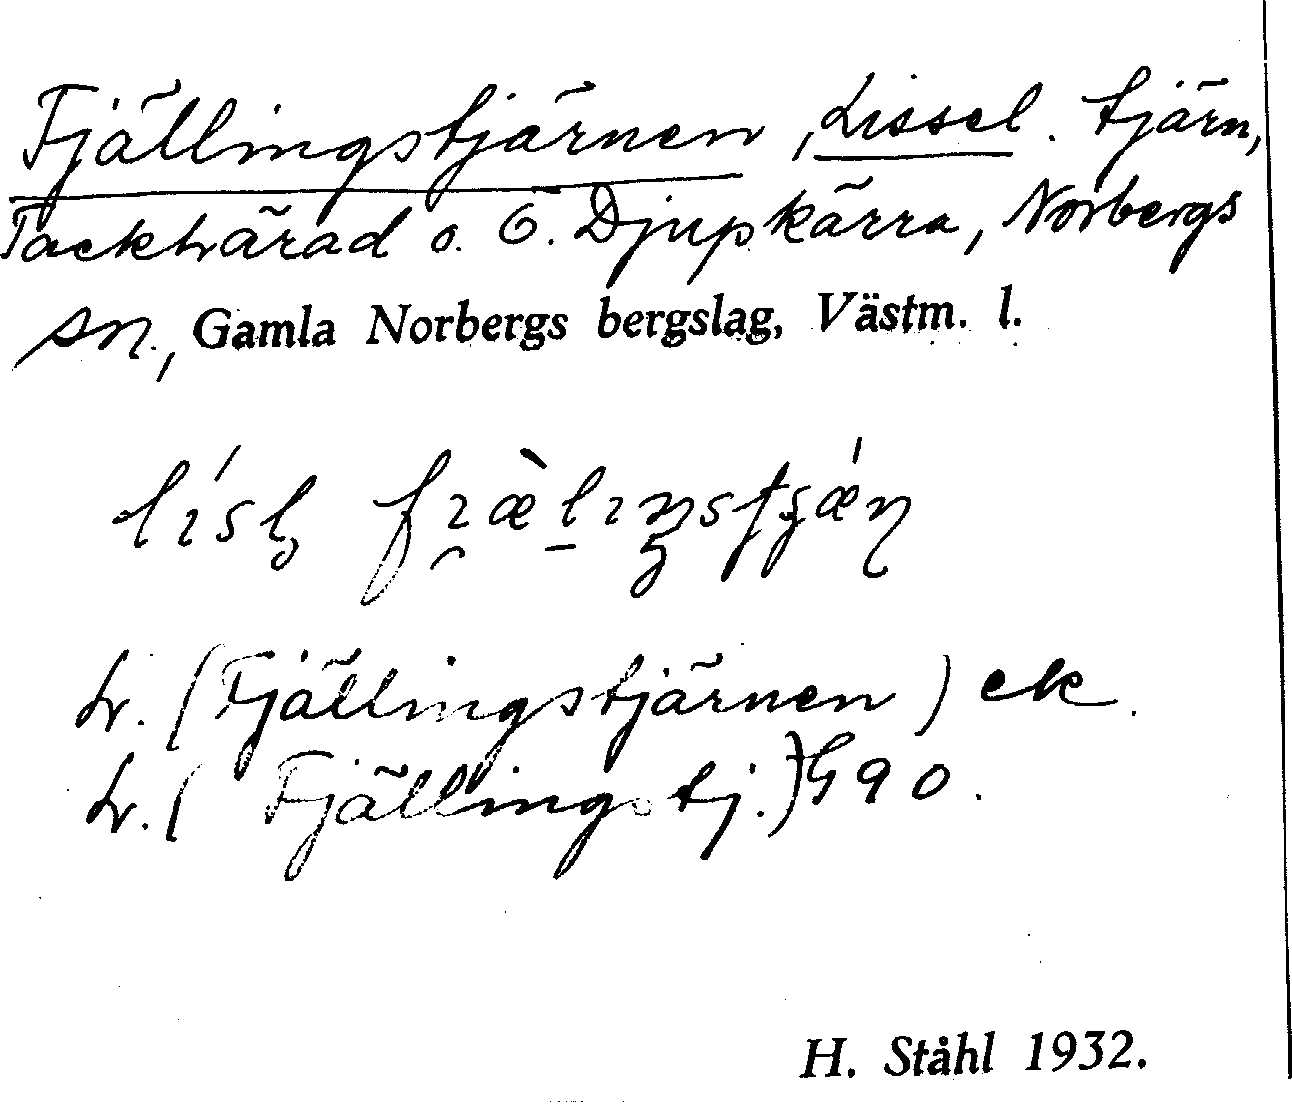 Fjällingstjärnen, Lissel. tjärn,
Tackhärad o. Ö. Djupkärra, Norbergs
sn., Gamla Norbergs bergslag, Västm. l.
hr. (Fjällingstjärnen) ek.
hr. (Fjällingstj.) G90.
H. Ståhl 1932.